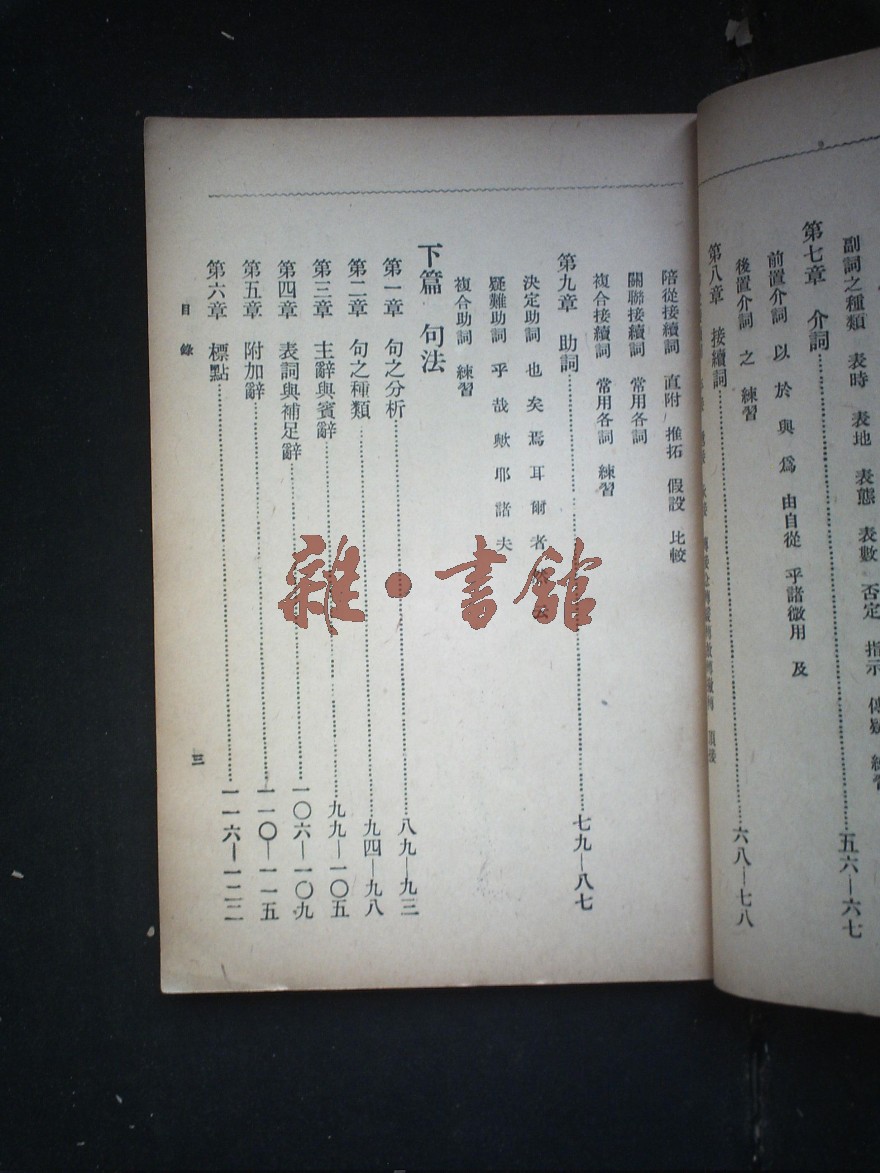 副詞之種類 表時 表地 表態 表數 否定 指示 傳疑 練習
第七章 介詞……五六—六七
前置介詞 以 於 與 爲 由自從 乎諸微用 及
後置介詞 之 練習
第八章 接續詞……六八—七八
陪從接續詞 直附 推拓 假設 比較
關聯接續詞 常用各詞
複合接續詞 常用各詞 練習
第九章 助詞……七九—八七
決定助詞 也 矣 焉 耳 爾 者 云
疑難助詞 乎 哉 歟 耶 諸 夫
複合助詞 練習
下篇 句法
第一章 句之分析……八九—九三
第二章 句之種類……九四—九八
第三章 主辭與賓辭……九九—一〇五
第四章 表詞與補足辭……一〇六—一〇九
第五章 附加辭……一一〇—一一五
第六章 標點……一一六—一二二
目錄
三
雜·書館